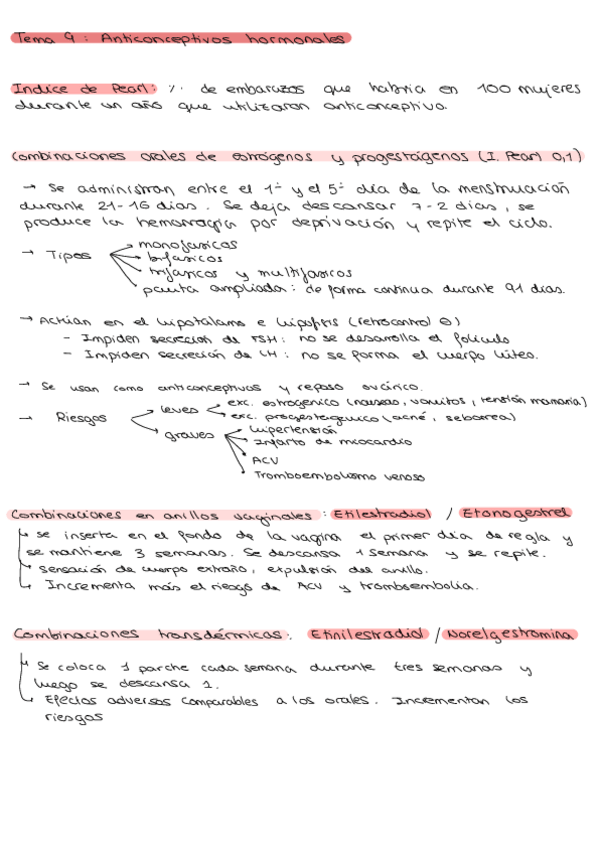 Tema 9: Anticonceptivos hormonales
Indice de Pearl: % de embarazos que habria en 100 mujeres
durante un año que utilizaron anticonceptivo.
Combinaciones orales de estrógenos y progestágenos (I. Pearl 0,1)
→ Se administran entre el 1º y el 5º día de la menstruación
durante 21-16 dias. Se deja descansar 7-2 dias, se
produce la hemorragia por deprivación y repite el ciclo.
→ Tipos
monofasicos
bifasicos
trifasicos y multifasicos
pauta ampliada: de forma continua durante 91 dias.
→ Actúan en el hipotálamo e hipófisis (retrocontrol ⊖)
- Impiden secreción de FSH: no se desarrolla el folículo
- Impiden secreción de LH: no se forma el cuerpo lúteo.
→ Se usan como anticonceptivos y reposo ovárico.
→ Riesgos
leves
exc. estrogénico (náuseas, vómitos, tensión mamaria)
exc. progestergenico (acné, seborrea)
graves
hipertensión
Infarto de miocardio
ACV
Tromboembolismo venoso
Combinaciones en anillos vaginales: Etilestradiol / Etonogestrel
se inserta en el fondo de la vagina el primer día de regla y
se mantiene 3 semanas. Se descansa 1 semana y se repite.
sensación de cuerpo extraño, expulsión del anillo.
Incrementa más el riesgo de ACV y tromboembolia.
Combinaciones transdérmicas: Etinilestradiol / Norelgestromina
Se coloca 1 parche cada semana durante tres semanas y
luego se descansa 1.
Efectos adversos comparables a los orales. Incrementan los
riesgos